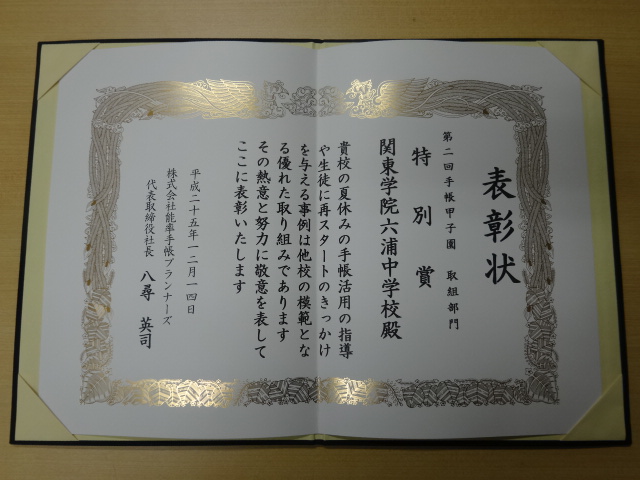 表彰状
第二回手帳甲子園 取組部門
特別賞
関東学院六浦中学校殿
貴校の夏休みの手帳活用の指導
や生徒に再スタートのきっかけ
を与える事例は他校の模範とな
る優れた取り組みであります
その熱意と努力に敬意を表して
ここに表彰いたします
平成二十五年一二月一四日
株式会社能率手帳プランナーズ
代表取締役社長 八尋 英司